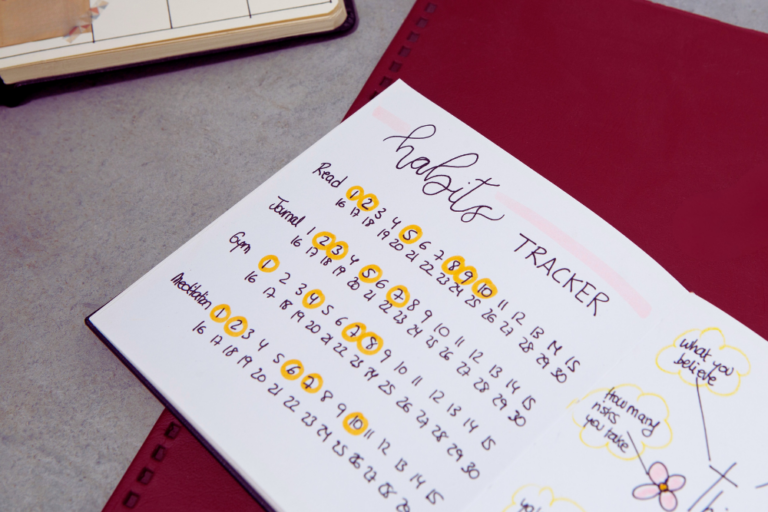 habits
TRACKER
Read 1 2 3 4 5 6 7 8 9 10 11 12 13 14 15
16 17 18 19 20 21 22 23 24 25 26 27 28 29 30
Journal 1 2 3 4 5 6 7 8 9 10 11 12 13 14 15
16 17 18 19 20 21 22 23 24 25 26 27 28 29 30
Gym 1 2 3 4 5 6 7 8 9 10 11 12 13 14 15
16 17 18 19 20 21 22 23 24 25 26 27 28 29 30
Meditation 1 2 3 4 5 6 7 8 9 10 11 12 13 14 15
16 17 18 19 20 21 22 23 24 25 26 27 28
what you
believe
How many
risks
you take